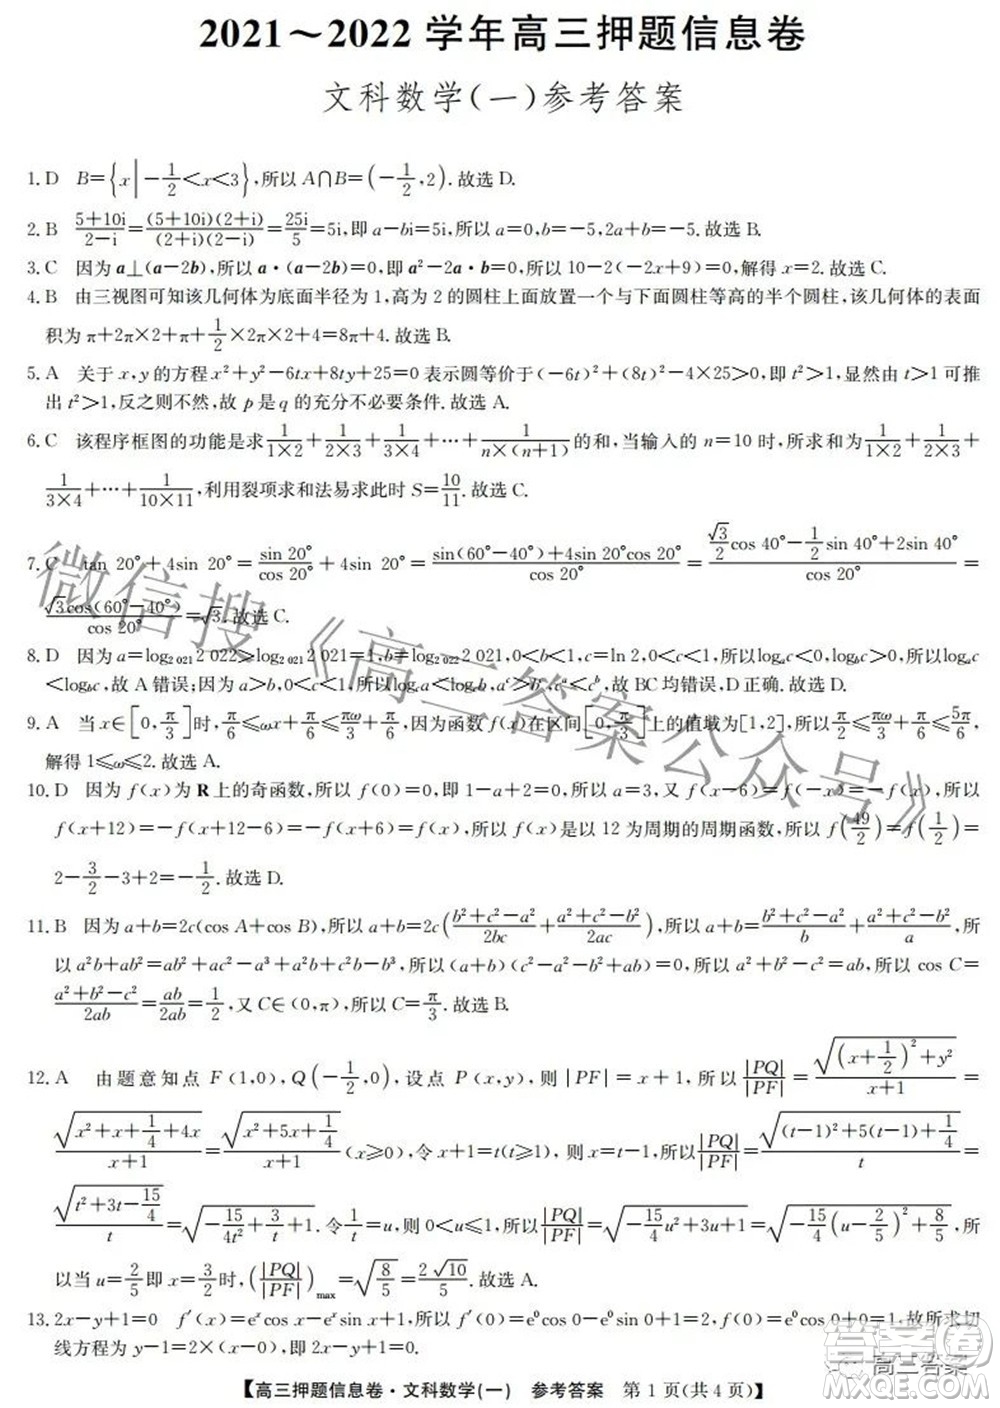 2021～2022 学年高三押题信息卷
文科数学(一)参考答案
1. D　B={x|-1/2<x<3},所以 A∩B=(-1/2,2).故选 D.
2. B　(5+10i)/(2-i)=(5+10i)(2+i)/(2+i)(2-i)=25i/5=5i,即 a-bi=5i,所以 a=0,b=-5,2a+b=-5.故选 B.
3. C　因为 a⊥(a-2b),所以 a·(a-2b)=0,即 a²-2a·b=0,所以 10-2(-2x+9)=0,解得 x=2.故选 C.
4. B　由三视图可知该几何体为底面半径为 1,高为 2 的圆柱上面放置一个与下面圆柱等高的半个圆柱,该几何体的表面
积为 π+2π×2+π+1/2×2π×2+4=8π+4.故选 B.
5. A　关于 x,y 的方程 x²+y²-6tx+8ty+25=0 表示圆等价于(-6t)²+(8t)²-4×25>0,即 t²>1,显然由 t>1 可推
出 t²>1,反之则不然,故 p 是 q 的充分不必要条件.故选 A.
6. C　该程序框图的功能是求 1/(1×2)+1/(2×3)+1/(3×4)+…+1/(n×(n+1)) 的和,当输入的 n=10 时,所求为 1/(1×2)+1/(2×3)+
1/(3×4)+…+1/(10×11),利用裂项求和法易求此时 S=10/11.故选 C.
7. C　tan 20°+4sin 20°=sin 20°/cos 20°+4sin 20°=(sin(60°-40°)+4sin 20°cos 20°)/cos 20°=(√3/2 cos 40°-1/2 sin 40°+2sin 40°)/cos 20°=
√3cos(60°-40°)/cos 20°=√3.故选 C.
8. D　因为 a=log₂₀₂₁2 022>log₂₀₂₁2 021=1,b=log₂₀₂₂2 021,0<b<1,c=ln 2,0<c<1,所以logₐc<0,log_bc>0,logₐc
<log_bc,故 A 错误;因为 a>b,0<c<1,所以log_ca<log_cb,aᶜ>bᶜ,cᵃ<cᵇ,故 BC 均错误,D 正确.故选 D.
9. A　当 x∈[0,π/3]时,π/6≤ωx+π/6≤πω/3+π/6,因为函数 f(x)在区间[0,π/3]上的值域为[1,2],所以π/2≤πω/3+π/6≤5π/6,
解得 1≤ω≤2.故选 A.
10. D　因为 f(x)为 R 上的奇函数,所以 f(0)=0,即 1-a+2=0,所以 a=3,又 f(x-6)=f(-x)=-f(x),所以
f(x+12)=-f(x+12-6)=-f(x+6)=f(x),所以 f(x)是以 12 为周期的周期函数,所以 f(49/2)=f(1/2)=
2-3/2-3+2=-1/2.故选 D.
11. B　因为 a+b=2c(cos A+cos B),所以 a+b=2c((b²+c²-a²)/2bc+(a²+c²-b²)/2ac),所以 a+b=(b²+c²-a²)/b+(a²+c²-b²)/a,所
以 a²b+ab²=ab²+ac²-a³+a²b+bc²-b³,所以(a+b)(c²-a²-b²+ab)=0,所以 a²+b²-c²=ab,所以 cos C=
(a²+b²-c²)/2ab=ab/2ab=1/2,又 C∈(0,π),所以 C=π/3.故选 B.
12. A　由题意知点 F(1,0),Q(-1/2,0),设点 P(x,y),则|PF|=x+1,所以|PQ|/|PF|=√((x+1/2)²+y²)/(x+1)=
√(x²+x+1/4+4x)/(x+1)=√(x²+5x+1/4)/(x+1)(x≥0),令 x+1=t(t≥1),则 x=t-1,所以|PQ|/|PF|=√((t-1)²+5(t-1)+1/4)/t=
√(t²+3t-15/4)/t=√(-15/4t²+3/t+1).令1/t=u,则 0<u≤1,所以|PQ|/|PF|=√(-15/4u²+3u+1)=√(-15/4(u-2/5)²+8/5),所
以当 u=2/5即 x=3/2时,(|PQ|/|PF|)max=√(8/5)=2√10/5.故选 A.
13. 2x-y+1=0　f′(x)=eˣcos x-eˣsin x+1,所以 f′(0)=e⁰cos 0-e⁰sin 0+1=2,f(0)=e⁰cos 0+0=1.故所求切
线方程为 y-1=2×(x-0),即 2x-y+1=0.
【高三押题信息卷·文科数学(一)　参考答案　第 1 页(共 4 页)】
微信搜《高三答案公众号》
高三答案
答案圈
MXQE.COM